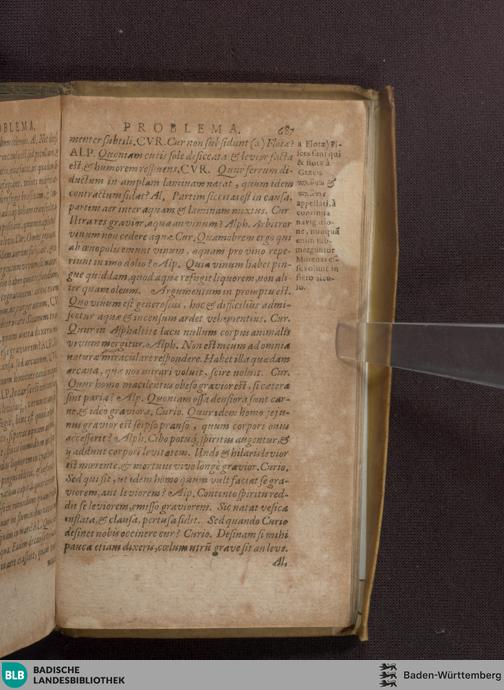 PROBLEMA. 687
menter subtili. CVR. Cur non subsidunt (a) Flotæ?
ALP. Quoniam cutis sole desiccata & levior facta
est, & humorem respuens. CVR. Quur ferrum di-
ductum in amplam laminam natat, quum idem
contractum sidat? Al. Partim siccitas est in causa,
partim aer inter aquam & laminam mixtus. Cur.
Utrares gravior, aqua an vinum? Alph. Arbitror
vinum non cedere aquæ. Cur. Quamobrem ergo qui
ab œnopolis emunt vinum, aquam pro vino repe-
riunt in imo dolio? Alp. Quia vinum habet pin-
gue quiddam, quod aquæ refugit liquorem, non ali-
ter quam oleum. Argumentum in promptu est.
Quo vinum est generosius, hoc & difficilius admi-
scetur aquæ & incensum ardet vehementius. Cur.
Quur in Asphaltite lacu nullum corpus animalis
vivum mergitur. Alph. Non est meum ad omnia
naturæ miracula respondere. Habet illa quædam
arcana, quæ nos mirari voluit, scire noluit. Cur.
Quur homo macilentus obeso gravior est, si cætera
sint paria? Alp. Quoniam ossa densiora sunt car-
ne, & ideo graviora. Curio. Quur idem homo jeju-
nus gravior est seipso pranso, quum corpori onus
accesserit? Alph. Cibo potuq; spiritus augentur, &
ij addunt corpori levitatem. Unde & hilaris levior
est mœrente, & mortuus vivo longè gravior. Curio.
Sed qui fit, ut idem homo quum vult faciat se gra-
viorem, aut leviorem? Alp. Contento spiritu red-
dit se leviorem, emisso graviorem. Sic natat vesica
inflata, & clausa, pertusa sidit. Sed quando Curio
desinet nobis occinere cur? Curio. Desinam si mihi
pauca etiam dixeris, cœlum utrū grave sit an leve.
Al.
a Flotæ) Pi-
sces sunt qui
& flutæ à
Græcis
appellati, à
continua
navigatio-
ne, nunquā
enim sub-
merguntur
BADISCHE
LANDESBIBLIOTHEK
BLB
Baden-Württemberg